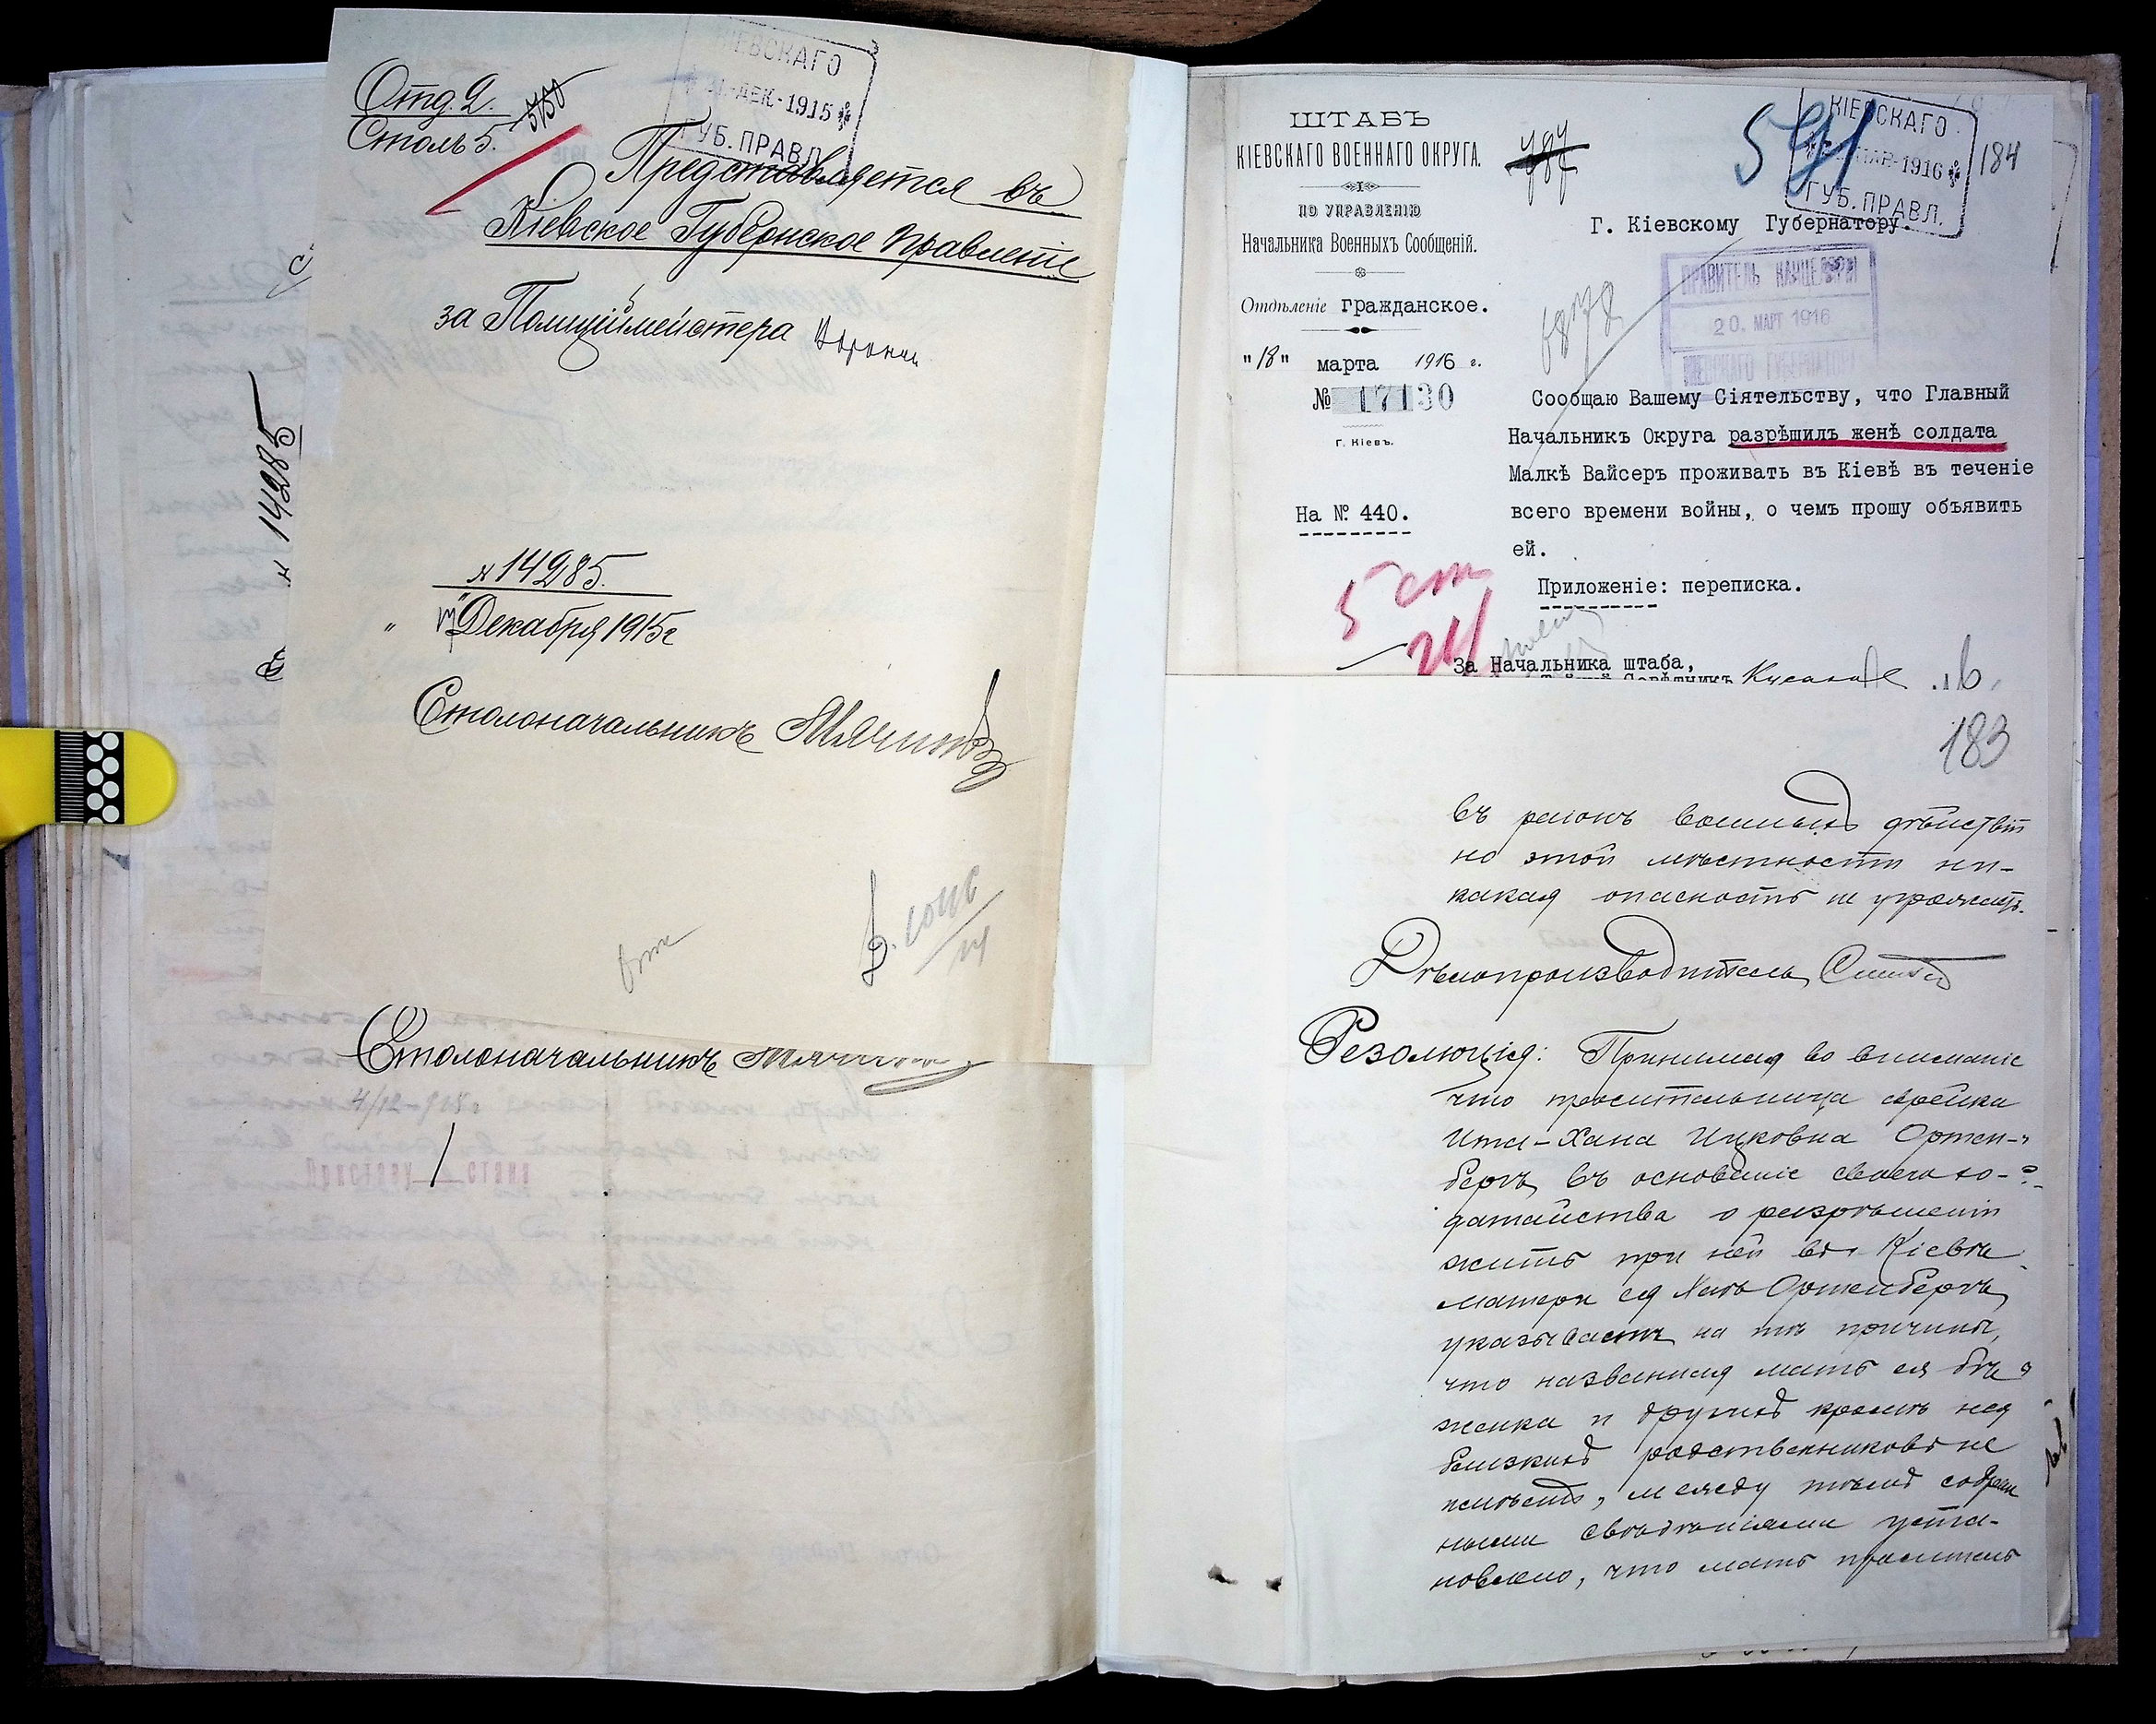 КІЕВСКАГО
31-ДЕК-1915
ГУБ. ПРАВЛ.
Отд. 2.
Столъ 5.
Представляется въ
Кіевское Губернское Правленіе
за Полиціймейстера
№ 14285.
" Декабря 1915 г
Столоначальникъ
№ 14285
Столоначальникъ
4/12-915 г
Приставу 1 стана
ШТАБЪ
КІЕВСКАГО ВОЕННАГО ОКРУГА.
ПО УПРАВЛЕНІЮ
Начальника Военныхъ Сообщеній.
Отдѣленіе Гражданское.
"18" марта 1916 г.
№ 17130
Г. Кіевъ.
На № 440.
787
КІЕВСКАГО
МАР-1916
ГУБ. ПРАВЛ.
184
Г. Кіевскому Губернатору.
ПРАВИТЕЛЬ КАНЦЕЛЯРІИ
20. МАРТ 1916
КІЕВСКАГО ГУБЕРНАТОРА
Сообщаю Вашему Сіятельству, что Главный
Начальникъ Округа разрѣшилъ женѣ солдата
Малкѣ Вайсеръ проживать въ Кіевѣ въ теченіе
всего времени войны, о чемъ прошу объявить
ей.
Приложеніе: переписка.
5 ст
За Начальника штаба,
183
въ раіонъ военныхъ дѣйствій
но этой мѣстности ни-
какая опасность не угрожаетъ.
Дѣлопроизводитель
Резолюція: Принимая во вниманіе
что просительница еврейка
Ита-Хана Ицковна Ортен-
бергъ въ основаніе своего хо-
датайства о разрѣшеніи
жить при ней въ г. Кіевѣ
матери ея Хаѣ Ортенбергъ,
указываетъ на тѣ причины,
что названная мать ея бѣ-
женка и другихъ кромѣ нея
близкихъ родственниковъ не
имѣетъ, между тѣмъ собран
ными свѣдѣніями уста-
новлено, что мать проситель